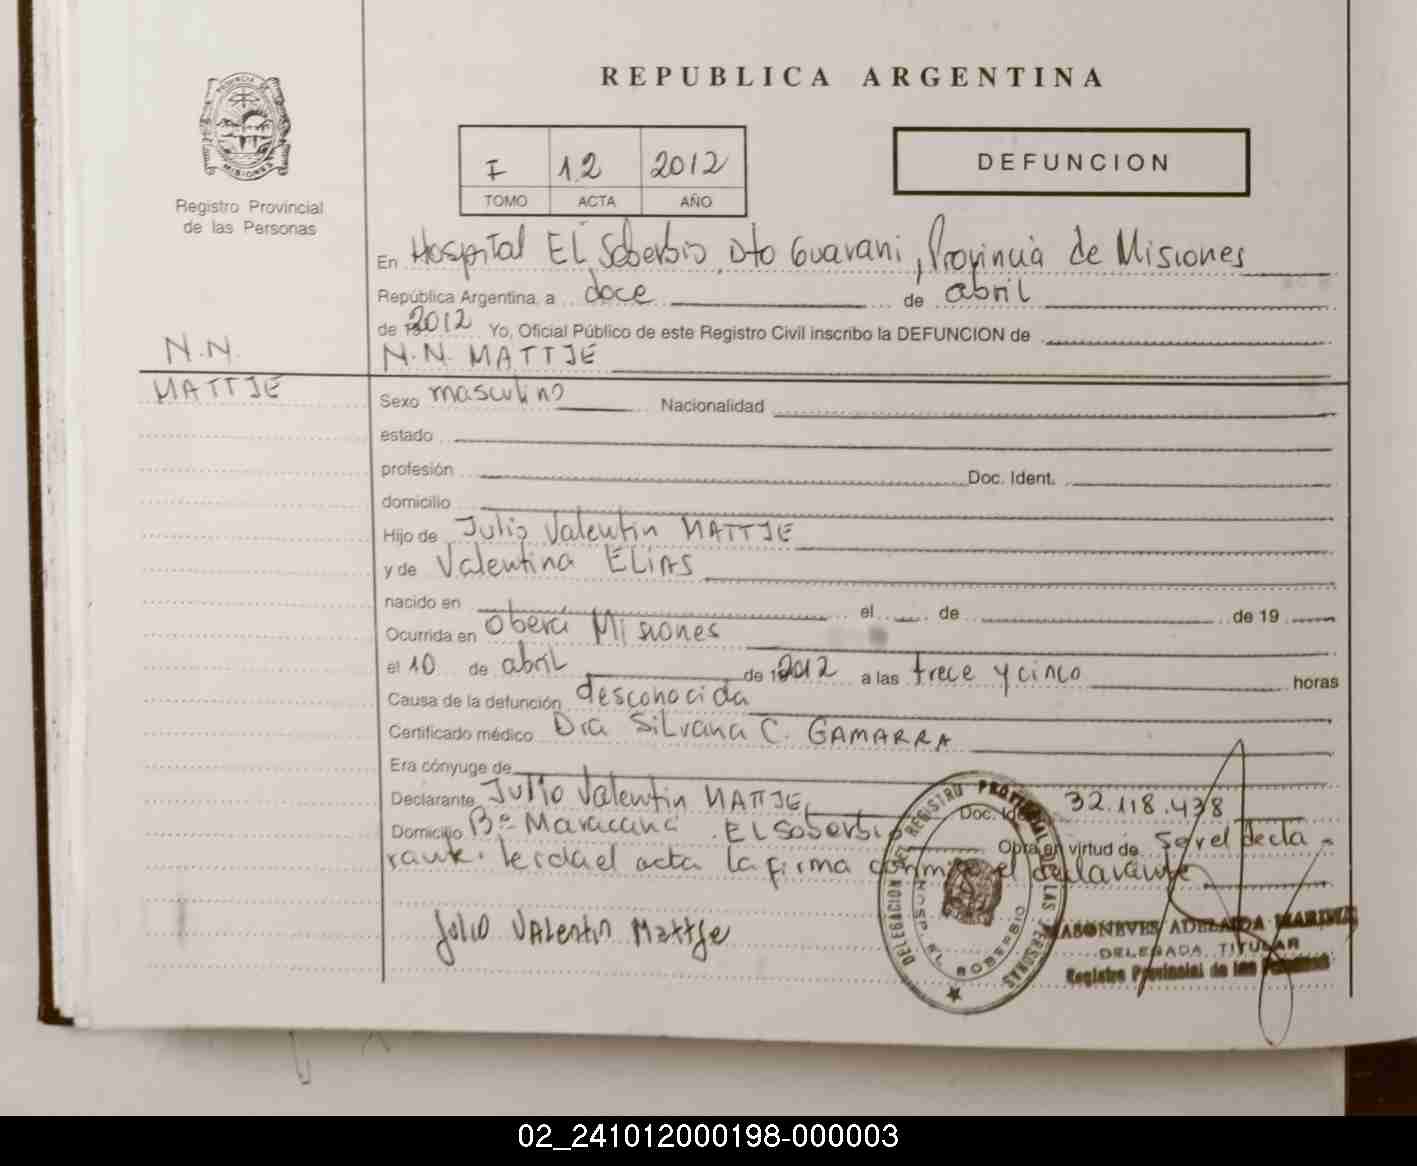 REPUBLICA ARGENTINA
PROVINCIA DE MISIONES
Registro Provincial
de las Personas
I 12 2012
TOMO ACTA AÑO
DEFUNCION
En Hospital El Soberbio Dto Guarani, Provincia de Misiones
República Argentina, a doce de abril
de 2012 Yo, Oficial Público de este Registro Civil inscribo la DEFUNCION de
N.N. MATTJE
N.N.
MATTJE
Sexo masculino Nacionalidad
estado
profesión Doc. Ident.
domicilio
Hijo de Julio Valentin MATTJE
y de Valentina ELIAS
nacido en el de de 19
Ocurrida en Oberá Misiones
el 10 de abril de 2012 a las trece y cinco horas
Causa de la defunción desconocida
Certificado médico Dra Silvana C. GAMARRA
Era cónyuge de
Declarante Julio Valentin MATTJE Doc. Ident. 32.118.438
Domicilio Bº Maracaná El Soberbio Obra en virtud de ser el decla
rante. leida el acta la firma conmigo el declarante
Julio Valentin Mattje
DELEGACION REGISTRO PROVINCIAL DE LAS PERSONAS
EL SOBERBIO
ADELAIDA
DELEGADA TITULAR
Registro Provincial de las Personas
02_241012000198-000003